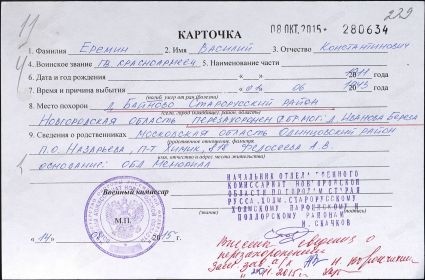 229
11
4
08 ОКТ. 2015 * 280634
КАРТОЧКА
1. Фамилия Еремин 2. Имя Василий 3. Отчество Константинович
4. Воинское звание ГВ. красноармеец 5. Наименование части
6. Дата и год рождения 1911 года
7. Время и причина выбытия « 01 » 06 1943 года
(погиб умер от ран (болезни)
8. Место похорон д. Байново Старорусский район
(село, город (кладбище) район, область)
Новгородская область (перезахоронен ФБР мог: д. Иванова Береза
9. Сведения о родственниках Московская область Одинцовский район
(родственное отношение, фамилия
п.о. Назарьева, п-т Химик, Федосеева А.В.
имя, отчество и адрес места жительства)
основание: ОБД Мемориал
НАЧАЛЬНИК ОТДЕЛА ВОЕННОГО
КОМИССАРИАТ НОВГОРОДСКОЙ
ОБЛАСТИ ПО ГОРОДУ СТАРАЯ
Военный комиссар РУССА, ХОЛМ, СТАРОРУССКОМУ
ХОЛМСКОМУ ПАРФИНСКОМУ И
(звание) ПОДДОРСКОМУ РАЙОНАМ
М.П. И. СКАЧКОВ
(подпись)
« 14 » 2015 г.
Внесены сведения о
перезахоронении
Зав.
2015